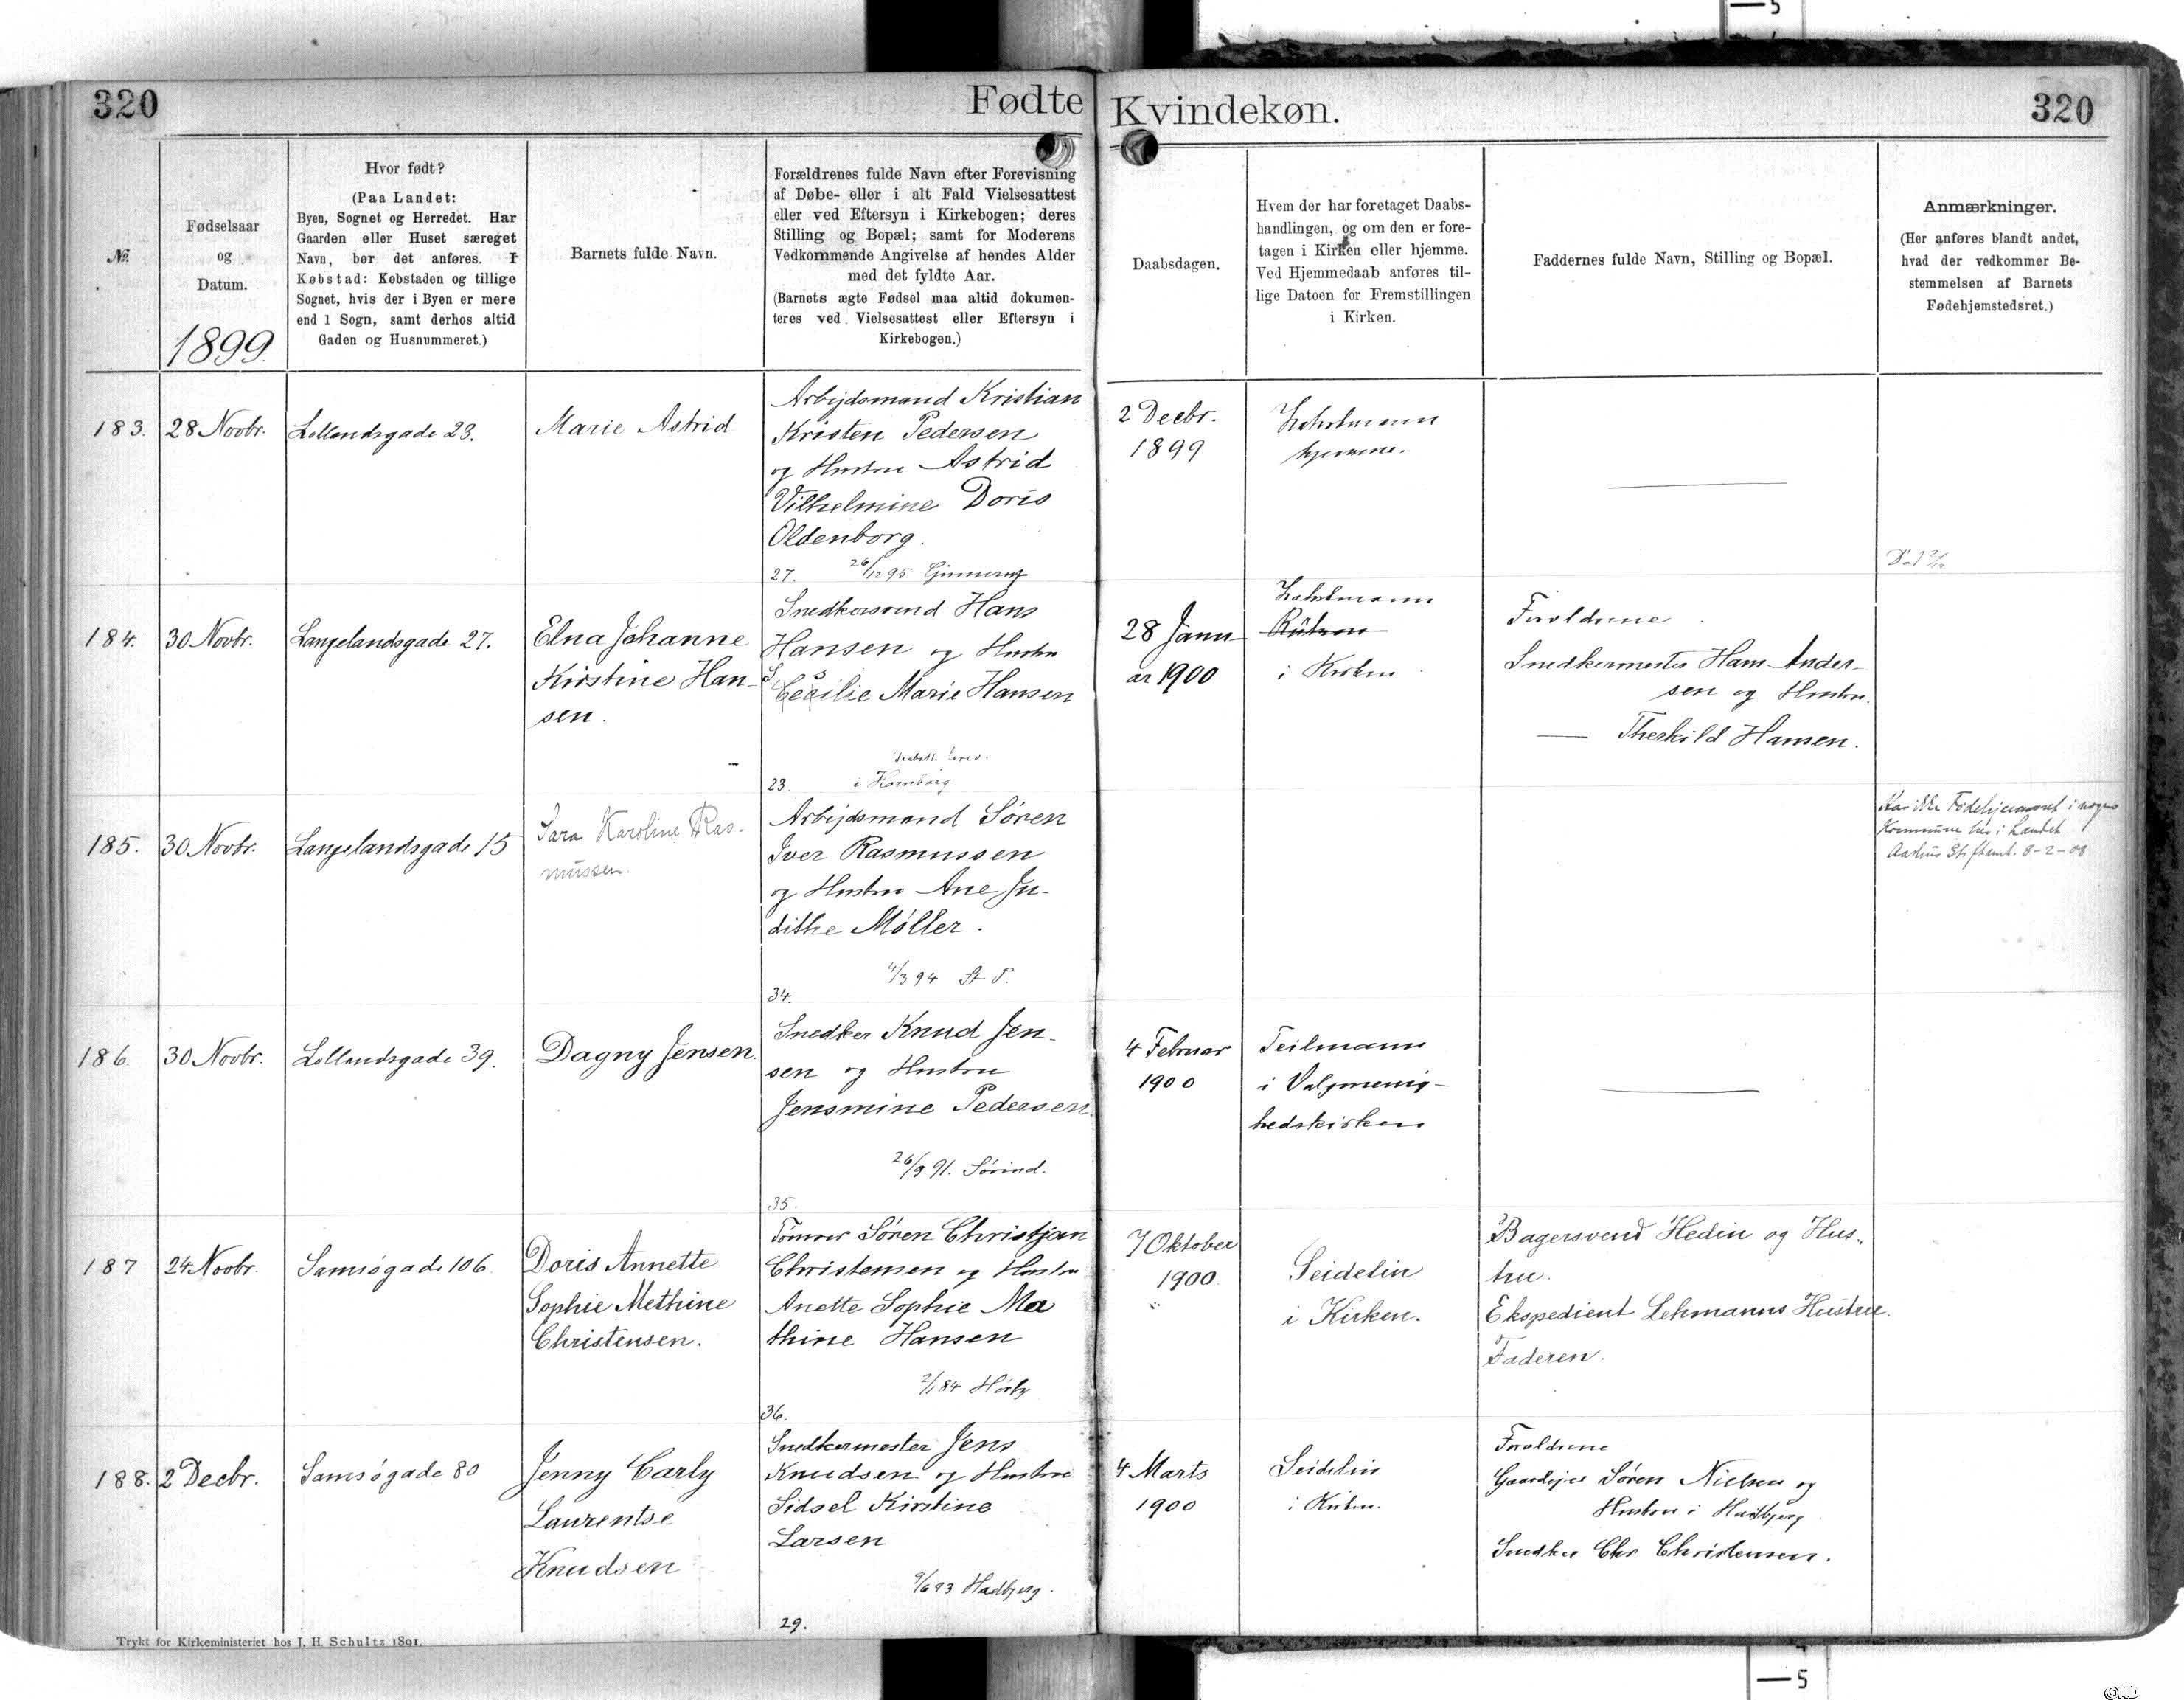 320
Fødte
Kvindekøn.
320
No.
Fødselsaar
og
Datum.
1899
Hvor født?
(Paa Landet:
Byen, Sognet og Herredet. Har
Gaarden eller Huset særeget
Navn, bør det anføres. I
Købstad: Købstaden og tillige
Sognet, hvis der i Byen er mere
end 1 Sogn, samt derhos altid
Gaden og Husnummeret.)
Barnets fulde Navn.
Forældrenes fulde Navn efter Forevisning
af Døbe- eller i alt Fald Vielsesattest
eller ved Eftersyn i Kirkebogen; deres
Stilling og Bopæl; samt for Moderens
Vedkommende Angivelse af hendes Alder
med det fyldte Aar.
(Barnets ægte Fødsel maa altid dokumen-
teres ved Vielsesattest eller Eftersyn i
Kirkebogen.)
Daabsdagen.
Hvem der har foretaget Daabs-
handlingen, og om den er fore-
tagen i Kirken eller hjemme.
Ved Hjemmedaab anføres til-
lige Datoen for Fremstillingen
i Kirken.
Faddernes fulde Navn, Stilling og Bopæl.
Anmærkninger.
(Her anføres blandt andet,
hvad der vedkommer Be-
stemmelsen af Barnets
Fødehjemstedsret.)
183.
28 Novbr.
Lollandsgade 23.
Marie Astrid
Arbejdsmand Kristian
Kristen Pedersen
og Hustru Astrid
Vilhelmine Doris
Oldenborg.
27. 26/12 95
2 Decbr.
1899
hjemme.
184.
30 Novbr.
Langelandsgade 27.
Elna Johanne
Kirstine Han-
sen.
Snedkersvend Hans
Hansen og Hustru
Cecilie Marie Hansen
23.
i Hornborg
28 Janu-
ar 1900
i Kirken
Forældrene
Snedkermester Hans Ander-
sen og Hustru.
— Therkild Hansen.
185.
30 Novbr.
Langelandsgade 15
Sara Karoline Ras-
mussen.
Arbejdsmand Sören
Iver Rasmussen
og Hustru Ane Ju-
dithe Møller.
4/3 94
34.
Har ikke Fødehjemsret i nogen
Kommune her i Landet
Aarhus Stiftamt. 8-2-08
186.
30 Novbr.
Lollandsgade 39.
Dagny Jensen.
Snedker Knud Jen-
sen og Hustru
Jensmine Pedersen.
26/9 91.
35.
4 Februar
1900
Teilmann
i Valgmenig-
hedskirken
187
24 Novbr.
Samsøgade 106
Doris Annette
Sophie Methine
Christensen.
Tømrer Sören Christjan
Christensen og Hustru
Anette Sophie Ma
thine Hansen
2/1 84
36.
7 Oktober
1900.
Seidelin
i Kirken.
Bagersvend Hedin og Hus-
tru.
Ekspedient Lehmanns Hustru.
Faderen.
188.
2 Decbr.
Samsøgade 80
Jenny Carly
Laurentse
Knudsen
Snedkermester Jens
Knudsen og Hustru
Sidsel Kirstine
Larsen
9/6 93 Hadbjerg.
29.
4 Marts
1900
Seidelin
i Kirken.
Forældrene
Gaardejer Sören Nielsen og
Hustru i Hadbjerg
Snedker Chr Christensen.
Trykt for Kirkeministeriet hos J. H. Schultz 1891.
5
5